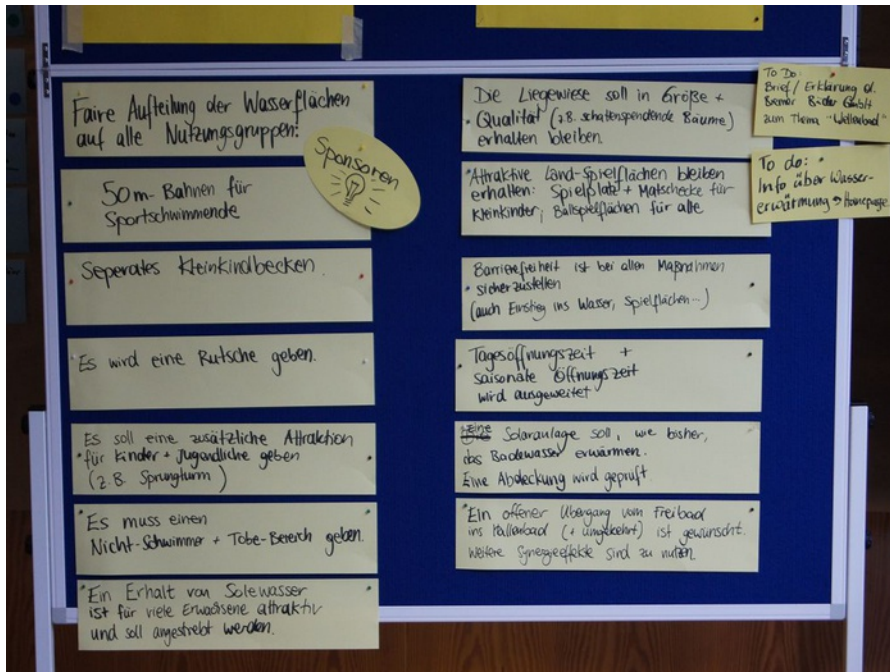 Faire Aufteilung der Wasserflächen
auf alle Nutzungsgruppen:
Sponsoren
50m-Bahnen für
Sportschwimmende
Seperates Kleinkindbecken.
Es wird eine Rutsche geben.
Es soll eine zusätzliche Attraktion
für Kinder + Jugendliche geben
(z.B. Sprungturm)
Es muss einen
Nicht-Schwimmer + Tobe-Bereich geben.
Ein Erhalt von Solewasser
ist für viele Erwachsene attraktiv
und soll angestrebt werden.
Die Liegewiese soll in Größe +
Qualität (z.B. schattenspendende Bäume)
erhalten bleiben.
Attraktive Land-Spielflächen bleiben
erhalten: Spielplatz + Matschecke für
Kleinkinder, Ballspielflächen für alle
Barrierefreiheit ist bei allen Maßnahmen
sicherzustellen
(auch Einstieg ins Wasser, Spielflächen...)
Tagesöffnungszeit +
saisonale Öffnungszeit
wird ausgeweitet
eine Solaranlage soll, wie bisher,
das Badewasser erwärmen.
Eine Abdeckung wird geprüft
Ein offener Übergang vom Freibad
ins Hallenbad (+ umgekehrt) ist gewünscht.
Weitere Synergieeffekte sind zu nutzen.
To Do:
Brief / Erklärung d.
Bremer Bäder GmbH
zum Thema "Wellenbad"
To do:
Info über Wasser-
erwärmung → Homepage